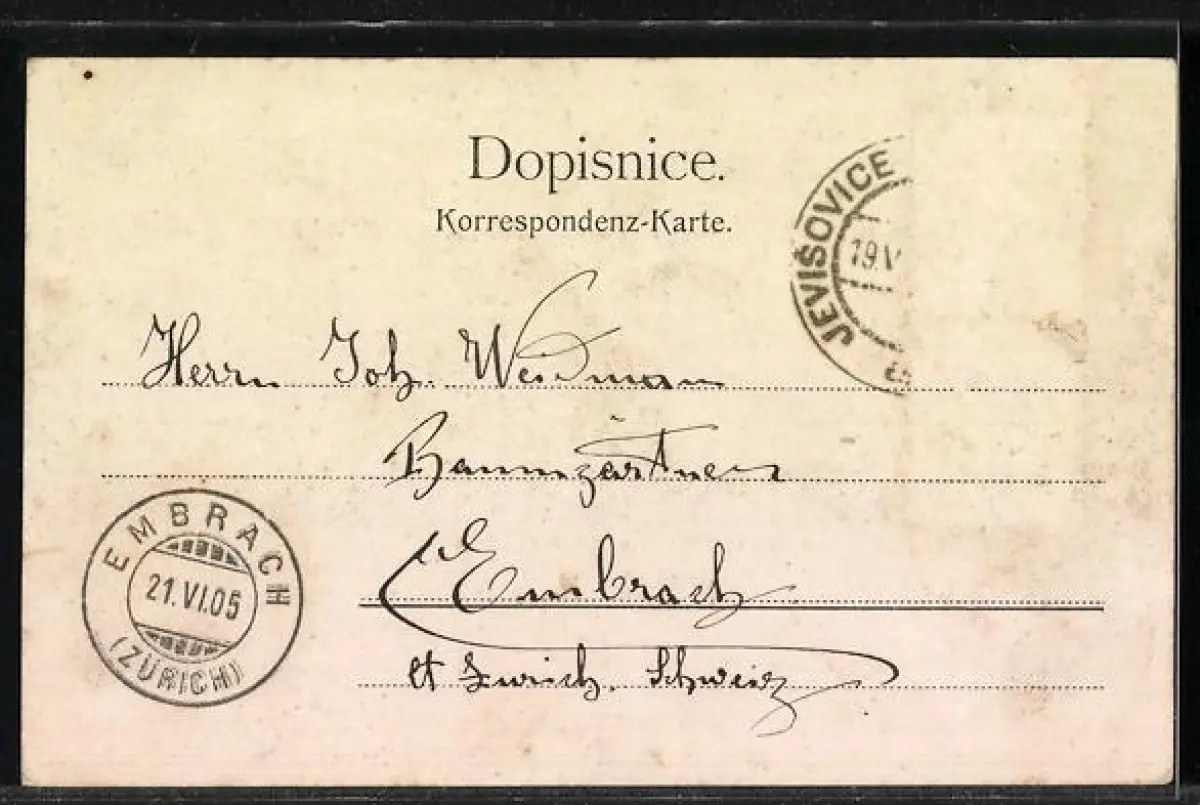 Dopisnice.
Korrespondenz-Karte.
JEVIŠOVICE
19.V
Herrn Joh. Weidmann
Baumgärtner
EMBRACH
21.VI.05
(ZÜRICH)
Embrach
Ct Zurich. Schweiz